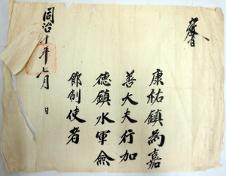 敎旨
康祐鎭爲嘉
善大夫行加
德鎭水軍僉
節制使者
同治十年 月 日